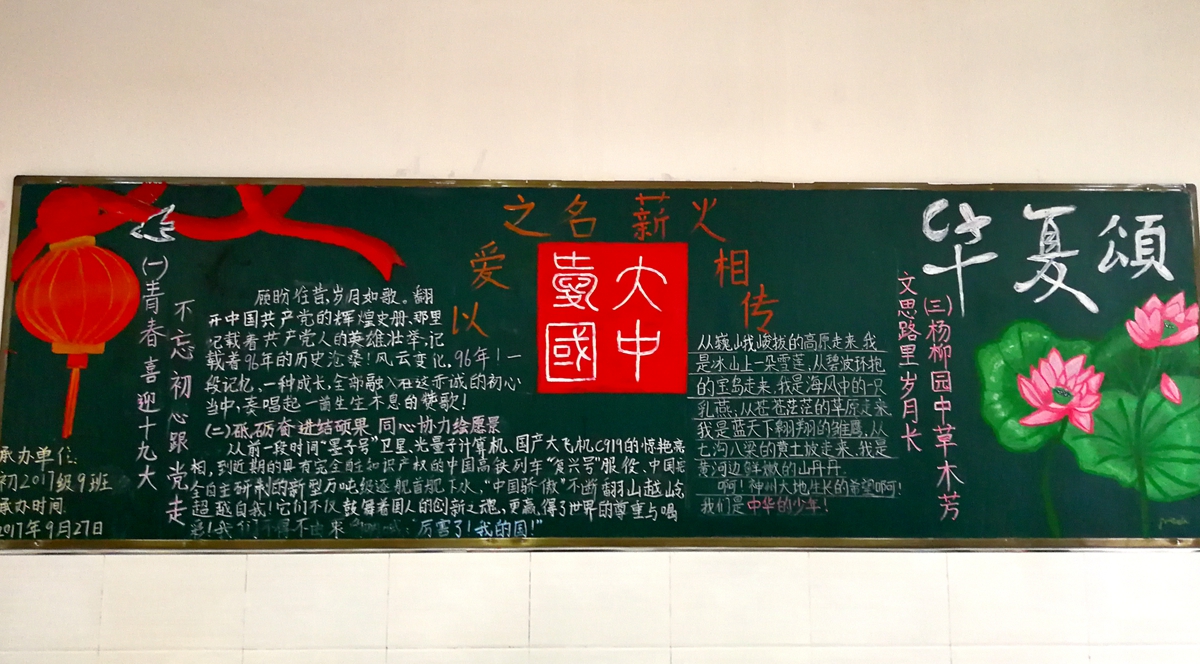 以爱之名 薪火相传
大中
爱國
华夏頌
(一)青春喜迎十九大
不忘初心跟党走
顾盼往昔,岁月如歌。翻
开中国共产党的辉煌史册,那里
记载着共产党人的英雄壮举,记
载着96年的历史沧桑!风云变化,96年!一
段记忆、一种成长,全部融入在这赤诚的初心
当中,奏唱起一首生生不息的赞歌!
(二)砥砺奋进结硕果 同心协力绘愿景
从前一段时间“墨子号”卫星、光量子计算机、国产大飞机C919的惊艳亮
相,到近期的具有完全自主知识产权的中国高铁列车“复兴号”服役、中国
全自主研制的新型万吨级逐舰首舰下水,“中国骄傲”不断翻山越岭
超越自我!它们不仅鼓舞着国人的创新之魂,更赢得了世界的尊重与喝
彩!我们不得不出来 厉害了!我的国!”
承办单位:
初2017级9班
承办时间:
2017年9月27日
(三)杨柳园中草木芳
文思路里岁月长
从巍山我峻拔的高原走来,我
是冰山上一朵雪莲,从碧波环抱
的宝岛走来,我是海风中的一只
乳燕;从苍苍茫茫的草原走来
我是蓝天下翱翔的雏鹰,从
七沟八梁的黄土坡走来,我是
黄河边鲜嫩的山丹丹.
啊!神州大地生长的希望啊!
我们是中华的少年!